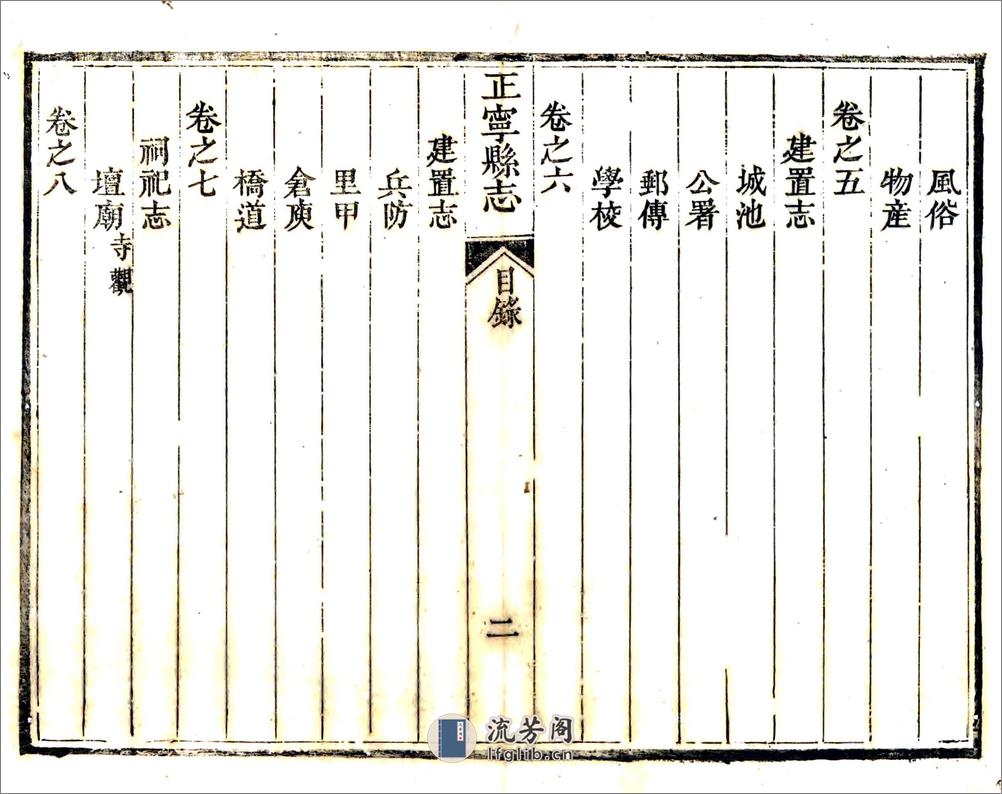 風俗
物産
卷之五
建置志
城池
公署
郵傳
學校
卷之六
正寧縣志
目錄
二
建置志
兵防
里甲
倉庾
橋道
卷之七
祠祀志
壇廟寺觀
卷之八
流芳阁
lfglib.cn